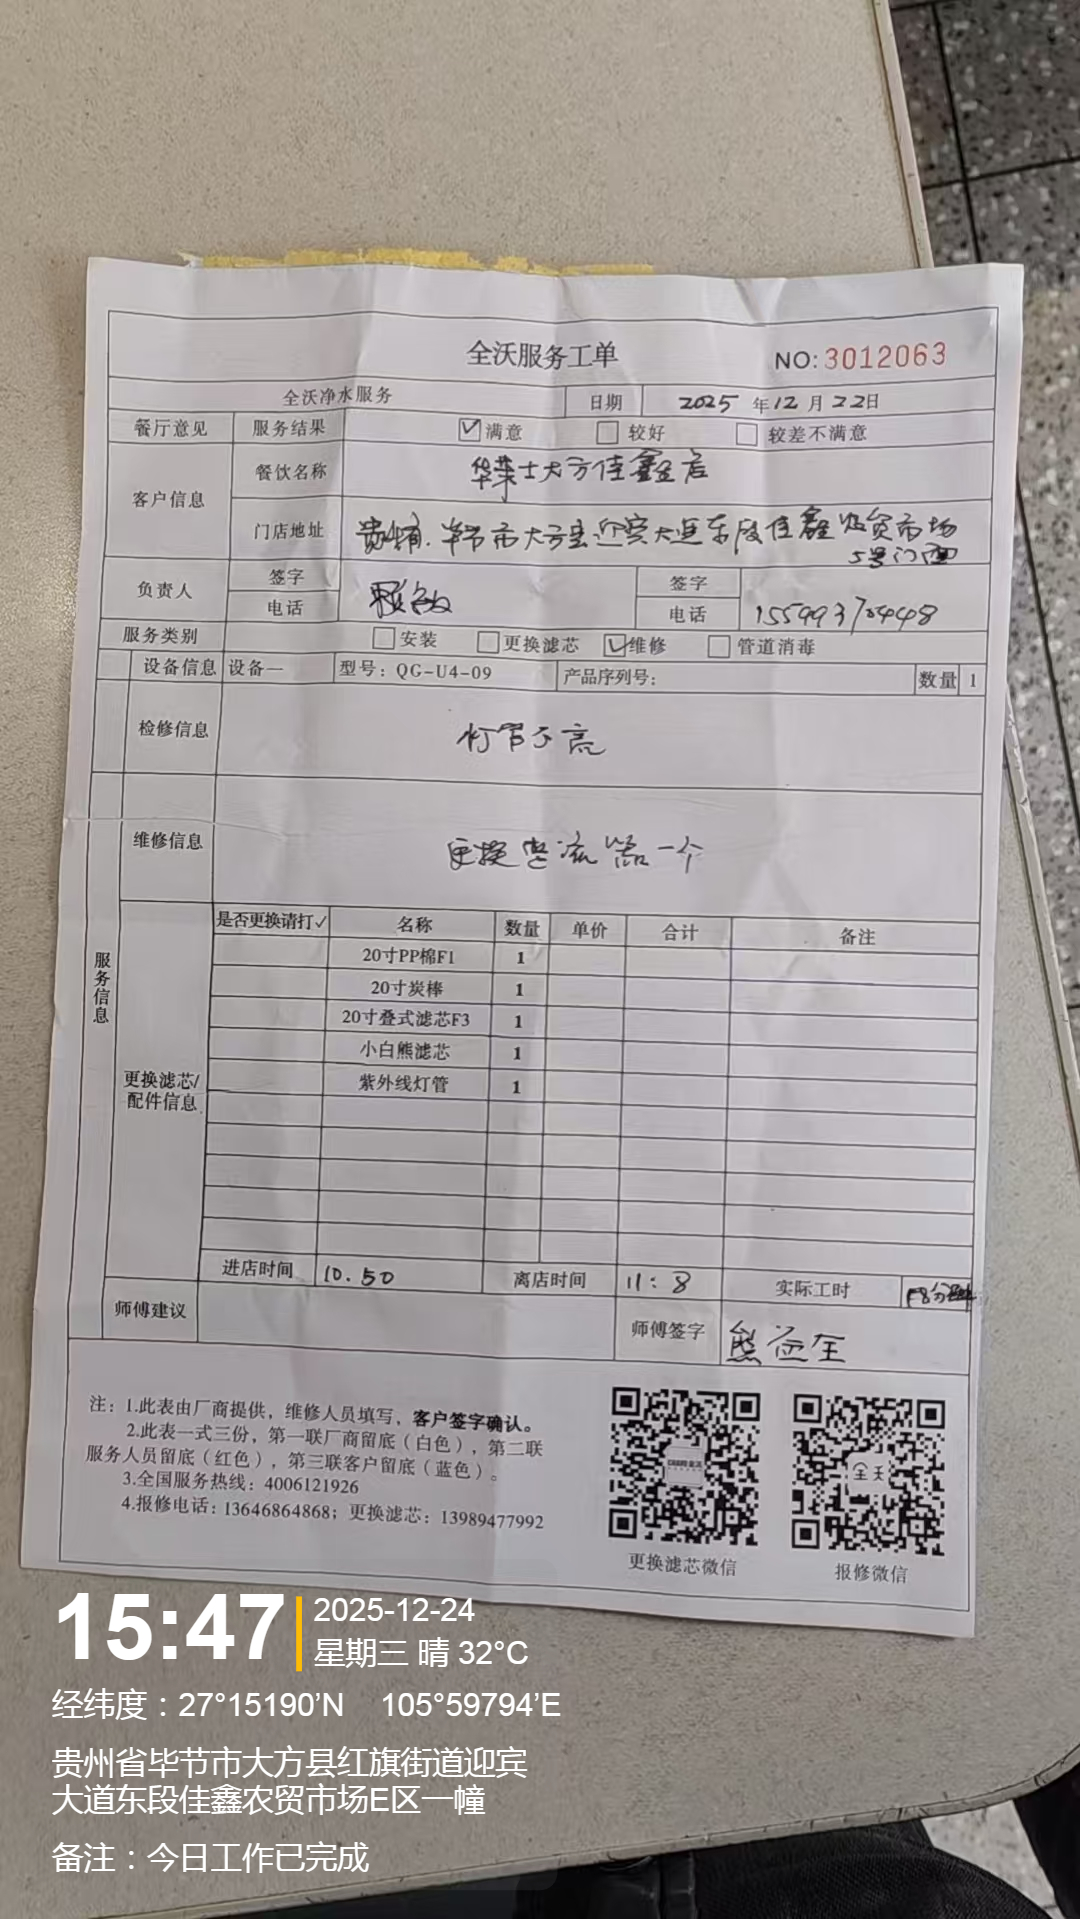 全沃服务工单
NO:3012063
全沃净水服务 日期 2025年12月22日
餐厅意见 服务结果 ✓满意 较好 较差不满意
客户信息 餐饮名称 华莱士大方佳鑫店
门店地址 贵州省毕节市大方县迎宾大道东段佳鑫农贸市场
5号门面
负责人 签字 签字
电话 电话 15599370448
服务类别 安装 更换滤芯 ✓维修 管道消毒
设备信息 设备一 型号：QG-U4-09 产品序列号： 数量 1
检修信息 灯管不亮
维修信息 更换整流器一个
服务信息
是否更换请打✓ 名称 数量 单价 合计 备注
20寸PP棉F1 1
20寸炭棒 1
20寸叠式滤芯F3 1
小白熊滤芯 1
紫外线灯管 1
更换滤芯/
配件信息
进店时间 10.50 离店时间 11:8 实际工时
师傅建议 师傅签字
注：1.此表由厂商提供，维修人员填写，客户签字确认。
2.此表一式三份，第一联厂商留底（白色），第二联
服务人员留底（红色），第三联客户留底（蓝色）。
3.全国服务热线：4006121926
4.报修电话：13646864868；更换滤芯：13989477992
全沃
更换滤芯微信
报修微信
15:47
2025-12-24
星期三 晴 32°C
经纬度：27°15190'N 105°59794'E
贵州省毕节市大方县红旗街道迎宾
大道东段佳鑫农贸市场E区一幢
备注：今日工作已完成